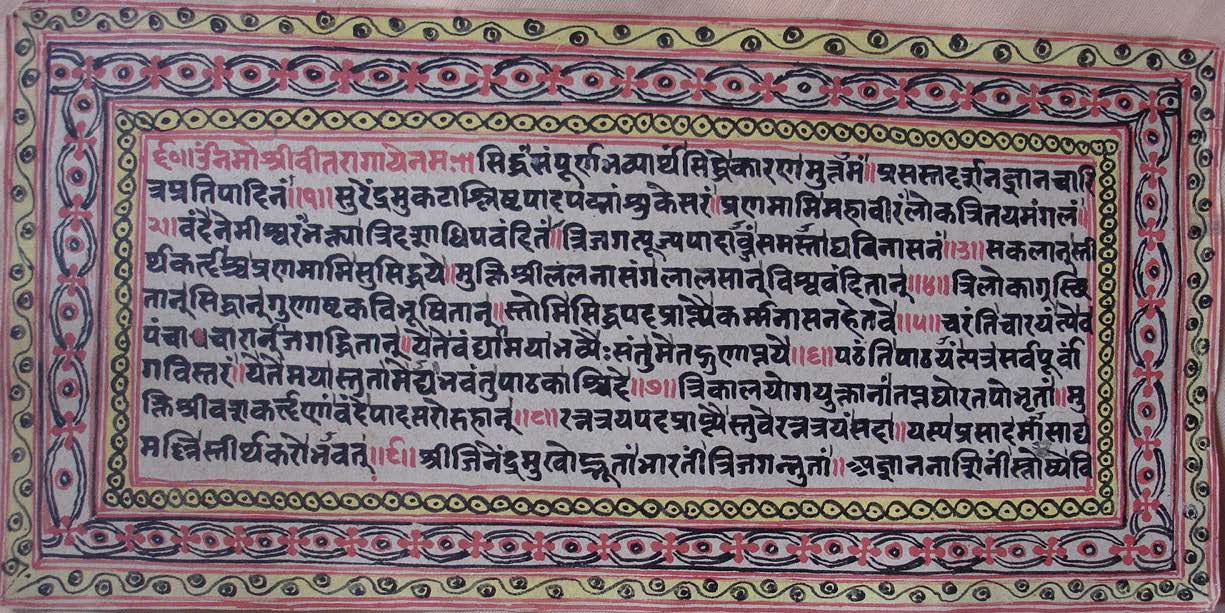 र्द०॥ उंनमो श्रीवीतरागायेनमः॥ सिद्धंसंपूर्णभव्यार्थंसिद्धेकारणमुत्तमं॥प्रसस्तदर्शनज्ञानचारि
त्रप्रतिपादिनं॥१॥ सुरेंद्रमुकटाश्लिष्टपादपद्मांशुकेसरं॥प्रणमामिमहावीरंलोकत्रितयमंगलं॥
२॥वंदेनेमीश्वरंभक्त्यात्रिदशाधिपवंदितं॥त्रिजगत्पूज्यपादाब्जंसमस्ताघविनासनं॥३॥सकलान्ती
र्थकर्त्तृंश्चप्रणमामिसुसिद्धये॥मुक्तिश्रीललनासंगलालसान्विश्ववंदितान्॥४॥त्रिलोकाग्रस्थि
तान्सिद्धान्गुणाष्टकविभूषितान्॥स्तोमिसिद्धपदप्राप्त्यैकर्म्मनासनहेतवे॥५॥चरंतिचारयंत्येव
पंचाचारान्जगद्धितान्॥येतेवंद्यामयाभव्यैःसंतुमेतद्गुणाप्तये॥६॥पठंतिपाठयंत्यत्रसर्वपूर्वां
गविस्तरं॥येतेमयास्तुतामेद्यभवंतुपाठकाश्चिदे॥७॥त्रिकालयोगयुक्तानांतप्तघोरतपोभृतां॥मु
क्तिश्रीवशकर्त्तृणांवंदेपादसरोरुहान्॥८॥रत्नत्रयपदप्राप्त्यैस्तुवेरत्नत्रयंसदा॥यस्यप्रसादर्मासाद्य
मश्रिस्तीर्थकरोभवत्॥९॥श्रीजिनेंद्रमुखोद्भूतांभारतींत्रिजगन्नुतां॥अज्ञाननाशिनींस्तोष्येवि